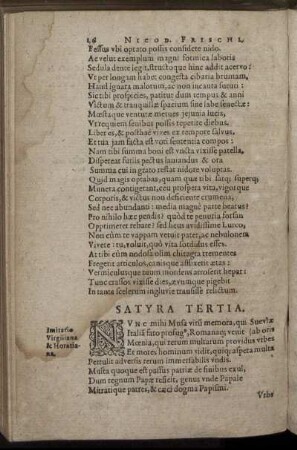 16 NICOD. FRISCHL.
Fessus vbi optato possis considere nido.
Ac velut exemplum magni formica laboris
Sedula dente legit, structo quæ hinc addit acervo:
Vt per longam habet congesta cibaria brumam,
Haud ignara malorum, ac non incauta futuri:
Sic tibi prospicies, patitur dum tempus & anni
Victum & tranquillæ spatium sine labe senectæ:
Mœstaque venturæ metues jejunia lucis,
Vt requiem senibus possis repetire diebus,
Liber es, & posthac vives ex tempore salvus.
Et tua jam facta est voti sententia compos:
Nam tibi summa boni est vncta vixisse patella,
Disperea si
Summa cui in grato restat indote voluptas.
Quid magis optabas, quam quæ tibi superi
Munera contigerant, ceu prospera vita, vigorque
Corporis, & victus non deficiente crumena;
Sed nec abundanti: media magne parte beatus?
Pro nihilo hæc pendis? quod te penuria forsan
Opprimeret rebare? sed heus avidissime Lucco,
Non eum te vappam vetuit pater, ac nebulonem
Vivere: tu, voluit, quo vita sordidus esses.
At tibi cum nodosa olim chiragra trementes
Fregerit articulos, canisque afflixerit ætas:
Vermiculatque tuum mordens arroserit heput:
Tunc crassos vixisse dies, ævumque pigebit
In tanta scelerum ingluvie transisse relictum.
SATYRA TERTIA.
Imitatio
Virgiliana
& Horatia-
na.
NVNC mihi Musa viri memora, qui Sueviæ ab oris
Italiā fato profug9, Romanaq; venit
Mœnia, qui rerum multarum providus vrbes
Et mores hominum vidit, quiq; aspera multa
Pertulit adversa rerum immertabilis vndis.
Multa quoque est passus patriæ de finibus exul,
Dum regnum Papæ reficit, genus vnde Papale
Mitratique patres, & cæci dogma Papismi.
Vrbs